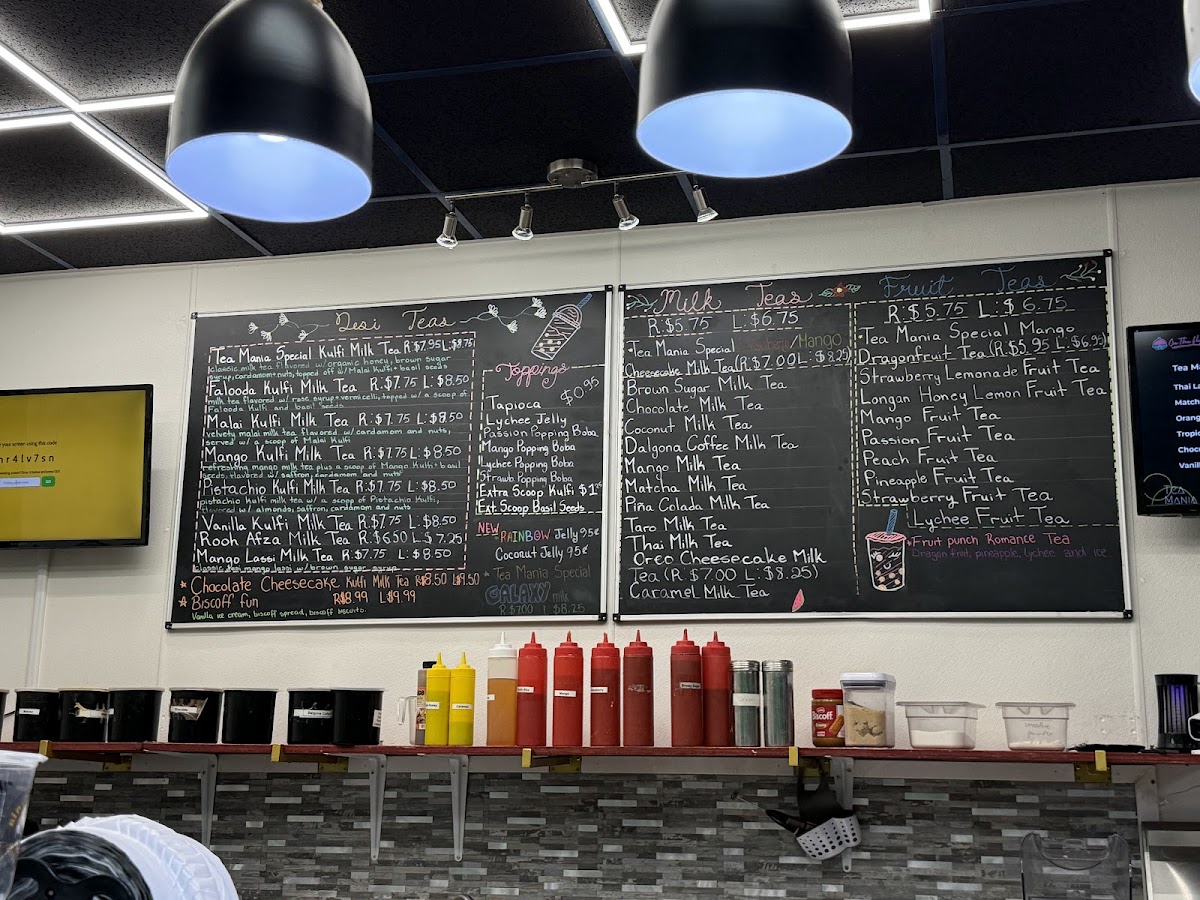 Desi Teas
Tea Mania Special Kulfi Milk Tea R:$7.95 L:$8.75
classic milk tea flavored w/ organic honey, brown sugar
syrup, cardamom, nuts, topped off w/ Malai Kulfi + basil seeds
Falooda Kulfi Milk Tea R:$7.75 L:$8.50
milk tea flavored w/ rose syrup + vermicelli, topped w/ a scoop of
Falooda Kulfi and basil seeds
Malai Kulfi Milk Tea R:$7.75 L:$8.50
velvety malai milk tea flavored w/ cardamom and nuts,
served w/ a scoop of Malai Kulfi
Mango Kulfi Milk Tea R:$7.75 L:$8.50
refreshing mango milk tea plus a scoop of Mango Kulfi + basil
seeds, flavored w/ saffron, cardamom and nuts
Pistachio Kulfi Milk Tea R:$7.75 L:$8.50
pistachio kulfi milk tea w/ a scoop of Pistachio Kulfi,
flavored w/ almonds, saffron, cardamom and nuts
Vanilla Kulfi Milk Tea R:$7.75 L:$8.50
Rooh Afza Milk Tea R:$6.50 L:$7.25
Mango Lassi Milk Tea R:$7.75 L:$8.50
classic desi mango lassi w/ brown sugar syrup
Chocolate Cheesecake Kulfi Milk Tea R$8.50 L$9.50
Biscoff fun R$8.99 L$9.99
Vanilla ice cream, biscoff spread, biscoff biscuits.
Toppings
$0.95
Tapioca
Lychee Jelly
Passion Popping Boba
Mango Popping Boba
Lychee Popping Boba
Strawb Popping Boba
Extra Scoop Kulfi $1
Ext. Scoop Basil Seeds
NEW RAINBOW Jelly 95¢
Coconut Jelly 95¢
Tea Mania Special
GALAXY milk
R $7.00 L:$8.25
Milk Teas
R:$5.75 L:$6.75
Tea Mania Special /Mango
Cheesecake Milk Tea (R:$7.00 L:$8.25)
Brown Sugar Milk Tea
Chocolate Milk Tea
Coconut Milk Tea
Dalgona Coffee Milk Tea
Mango Milk Tea
Matcha Milk Tea
Piña Colada Milk Tea
Taro Milk Tea
Thai Milk Tea
Oreo Cheesecake Milk
Tea (R $7.00 L:$8.25)
Caramel Milk Tea
Fruit Teas
R:$5.75 L:$6.75
Tea Mania Special Mango
Dragonfruit Tea (R:$5.95 L:$6.95)
Strawberry Lemonade Fruit Tea
Longan Honey Lemon Fruit Tea
Mango Fruit Tea
Passion Fruit Tea
Peach Fruit Tea
Pineapple Fruit Tea
Strawberry Fruit Tea
Lychee Fruit Tea
Fruit punch Romance Tea
Dragon fruit, pineapple, lychee and ice
your screen using this code
hr4lv7sn
Tea Ma
Thai L
Match
Orang
Tropic
Choc
Vanil
TEA
MANIA
Mango
Biscoff